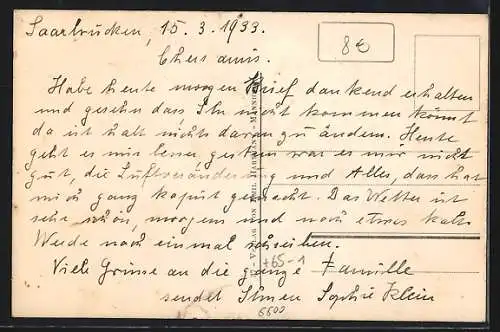 Saarbrücken, 15. 3. 1933.
Chers amis.
Habe heute morgen Brief dankend erhalten
und gesehn dass Ihr nicht kommen könnt
da ist halt nichts daran zu ändern. Heute
geht es mir besser, gestern war es mir nicht
gut, die Luftveränderung und Alles, dass hat
mich ganz kaput gemacht. Das Wetter ist
sehr schön, morgens und noch etwas kalt.
Werde noch einmal schreiben.
Viele Grüsse an die ganze Familie
sendet Ihnen Sophie Klein
8€
+65-1
6600